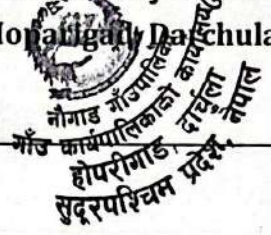 Hoparigad, Darchula
नौगाड गाँउपालिका
गाँउ कार्यपालिकाको कार्यालय
होपरीगाड, दार्चुला
सुदूरपश्चिम प्रदेश, नेपाल